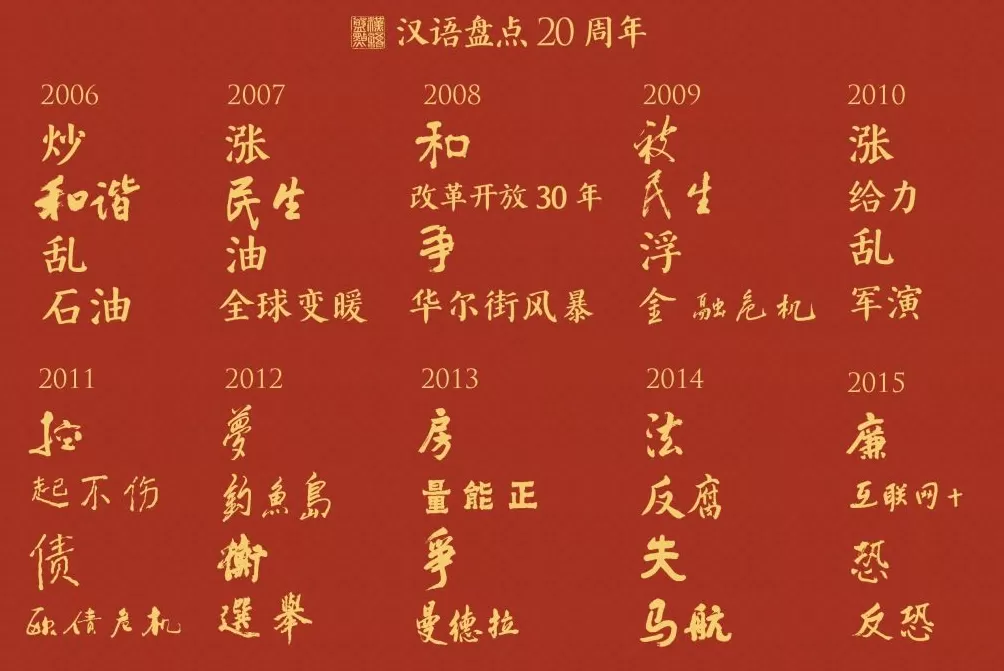 汉语盘点 20 周年
2006
炒
和谐
乱
石油
2007
涨
民生
油
全球变暖
2008
和
改革开放 30 年
争
华尔街风暴
2009
被
民生
浮
金融危机
2010
涨
给力
乱
军演
2011
控
起不伤
债
欧债危机
2012
夢
釣魚島
衡
選舉
2013
房
量能正
爭
曼德拉
2014
法
反腐
失
马航
2015
廉
互联网+
恐
反恐